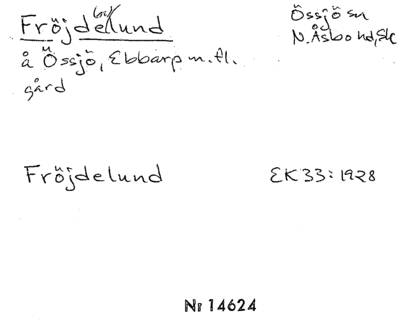 Fröjdelund
Össjö sn
N. Åsbo hd, Sk
å Össjö, Ebbarp m.fl.
gård
Fröjdelund
EK33:1928
Nr 14624